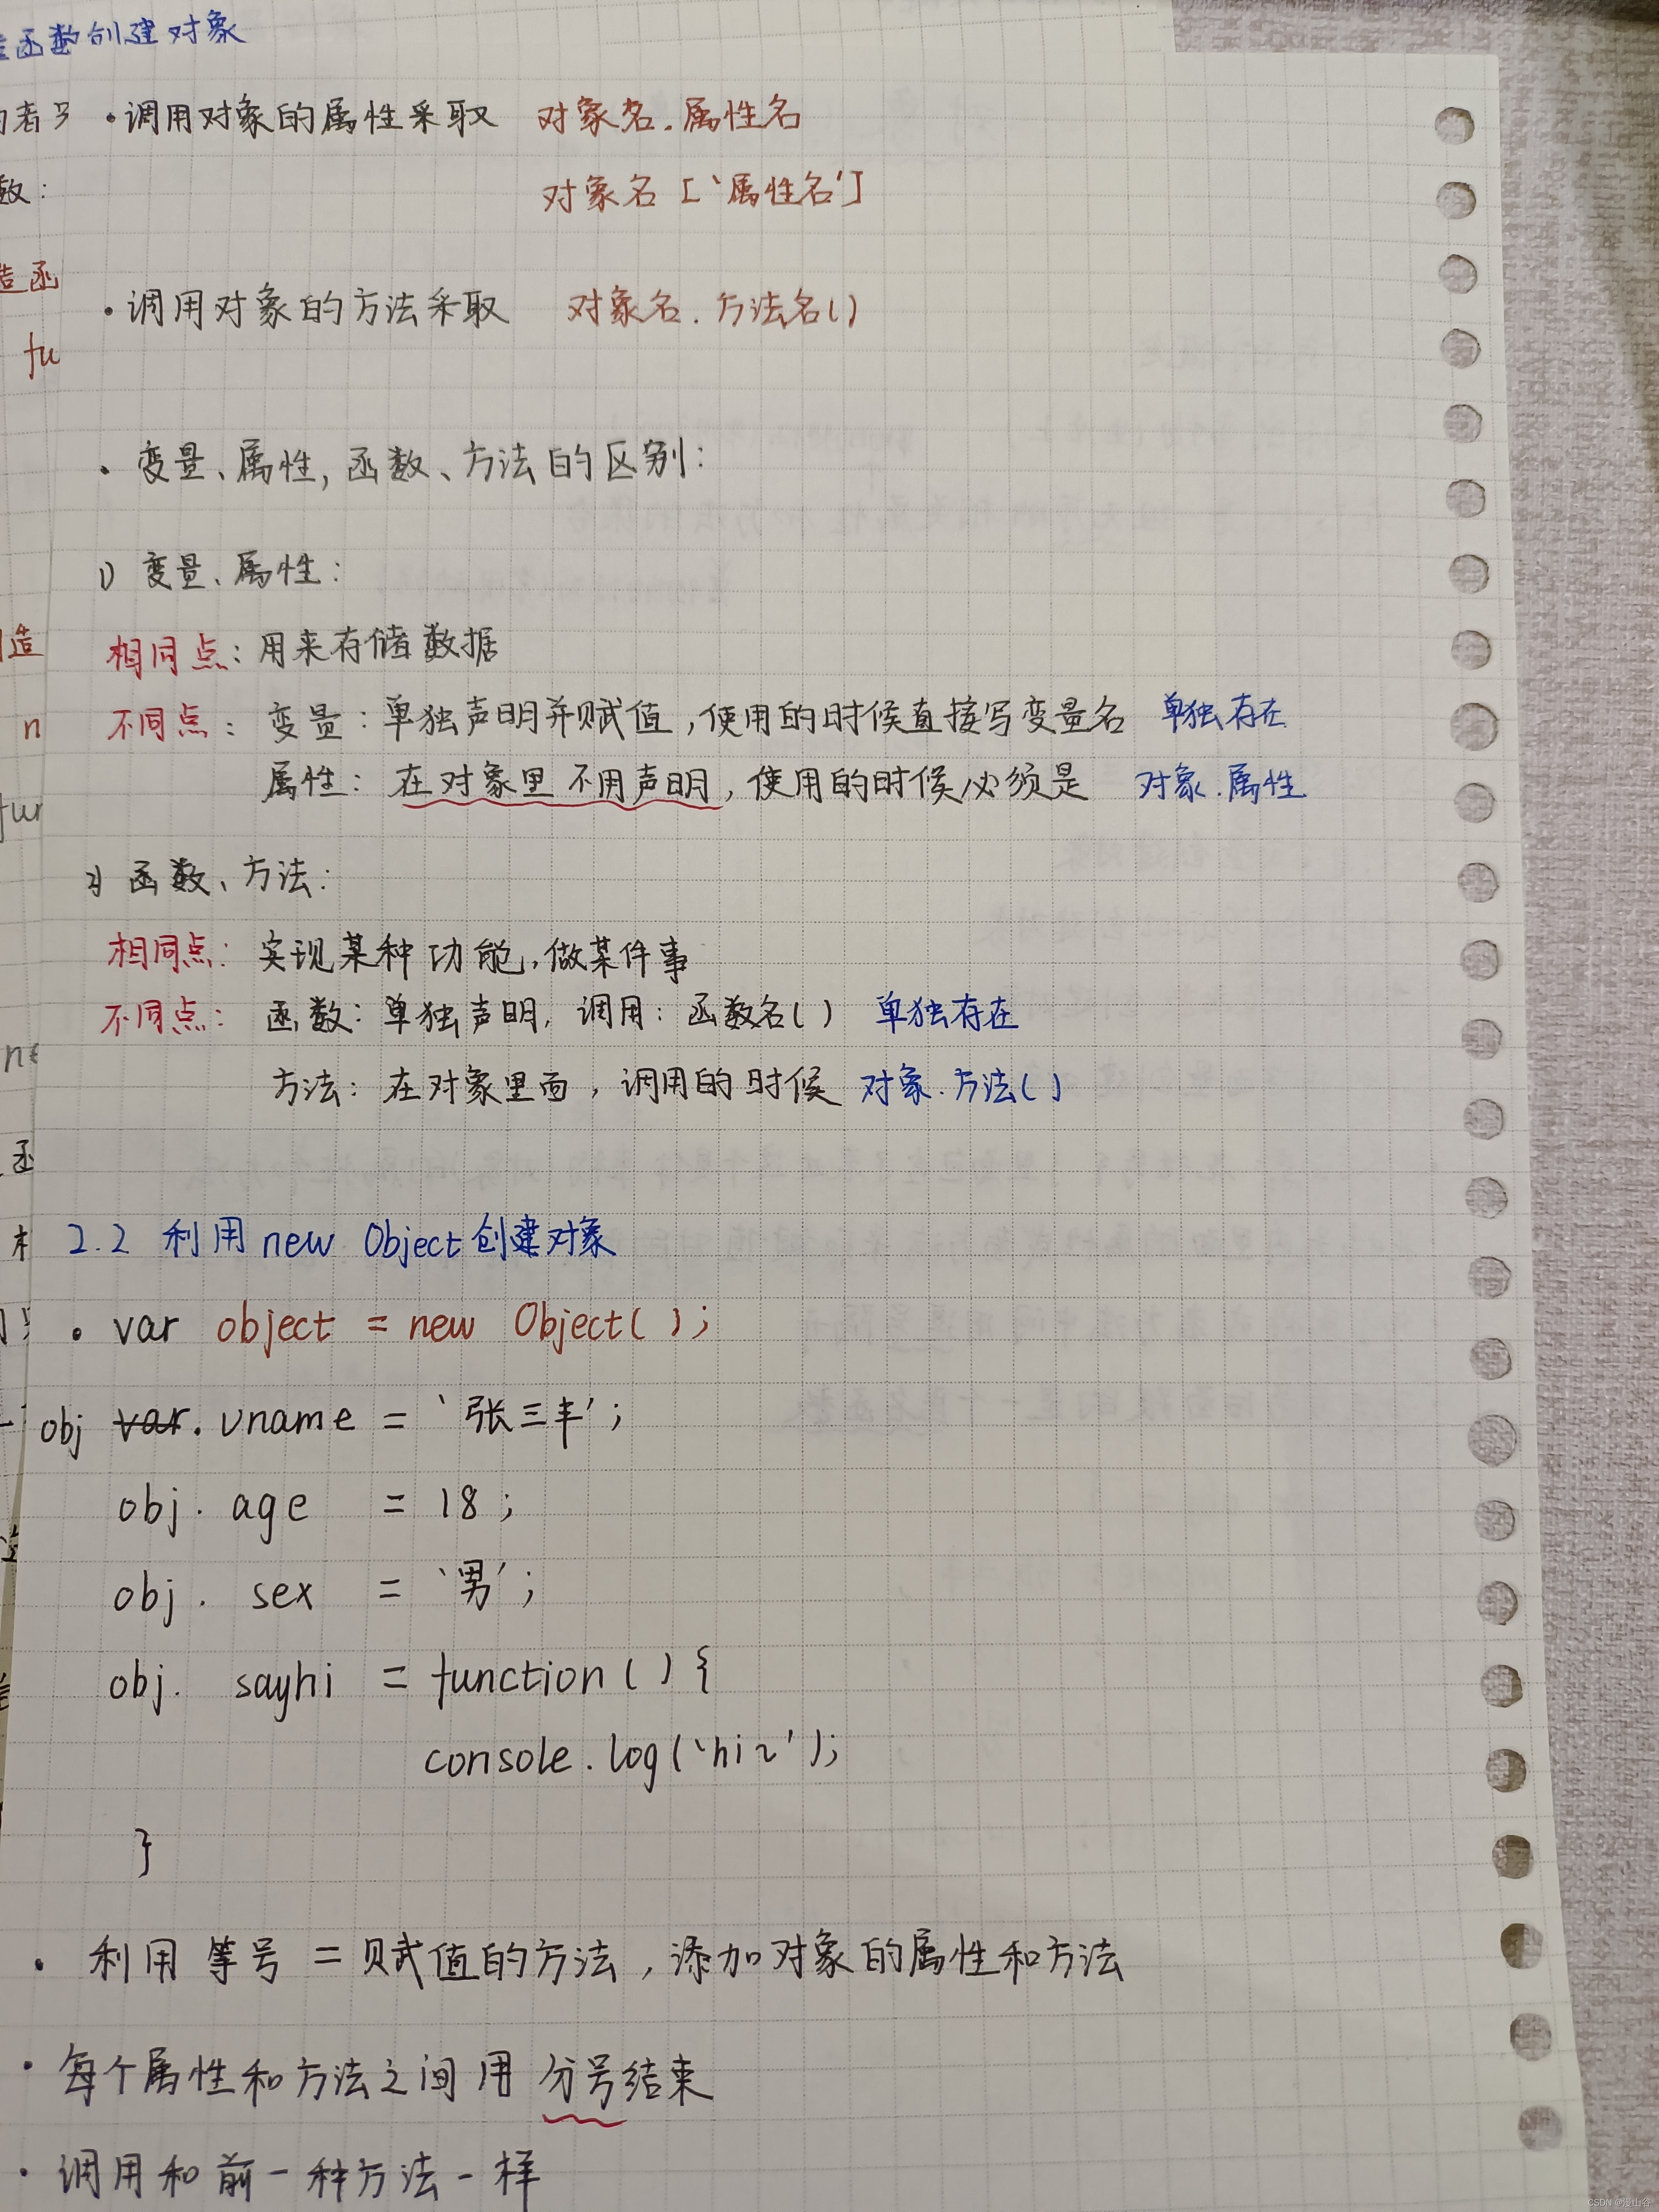 函数创建对象
·调用对象的属性采取 对象名.属性名
数:
对象名['属性名']
造函
·调用对象的方法采取 对象名.方法名()
fu
·变量、属性,函数、方法的区别:
1) 变量、属性:
造
相同点:用来存储数据
n
不同点:变量:单独声明并赋值,使用的时候直接写变量名 单独存在
属性:在对象里不用声明,使用的时候必须是 对象.属性
fur
2) 函数、方法:
相同点:实现某种功能,做某件事
不同点:函数:单独声明,调用:函数名() 单独存在
方法:在对象里面,调用的时候 对象.方法()
函
2.2 利用 new Object 创建对象
· var object = new Object();
obj var. uname = '张三丰';
obj. age = 18;
obj. sex = '男';
obj. sayhi = function(){
console.log('hi~');
}
· 利用 等号 = 赋值的方法,添加对象的属性和方法
· 每个属性和方法之间用 分号结束
· 调用和前一种方法一样
CSDN @漫山谷